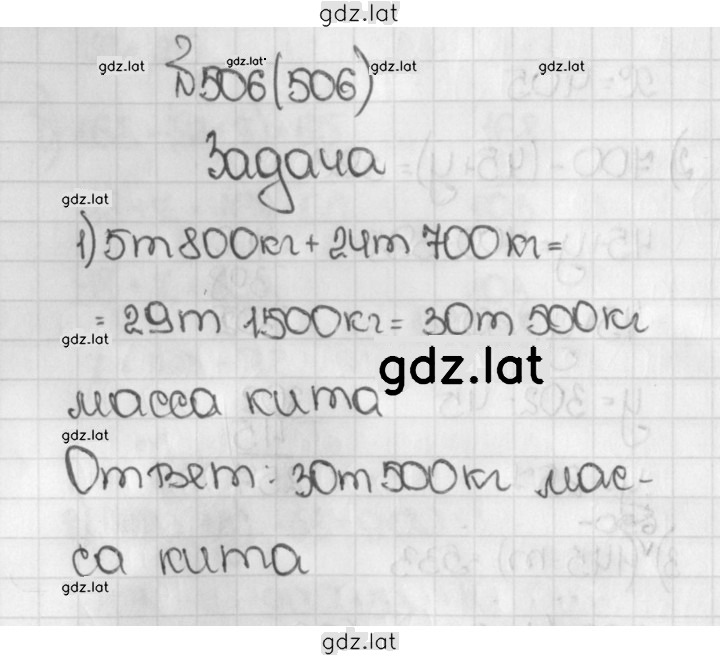 gdz.lat
gdz.lat gdz.lat gdz.lat gdz.lat
№506(506)
Задача
gdz.lat
1) 5т 800кг + 24т 700кг =
= 29т 1500кг = 30т 500кг
gdz.lat
gdz.lat
масса кита
gdz.lat
Ответ: 30т 500кг мас-
са кита
gdz.lat
gdz.lat